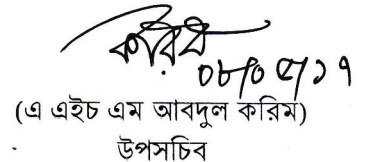 করিম
০৮/০৫/১৭
(এ এইচ এম আবদুল করিম)
উপসচিব